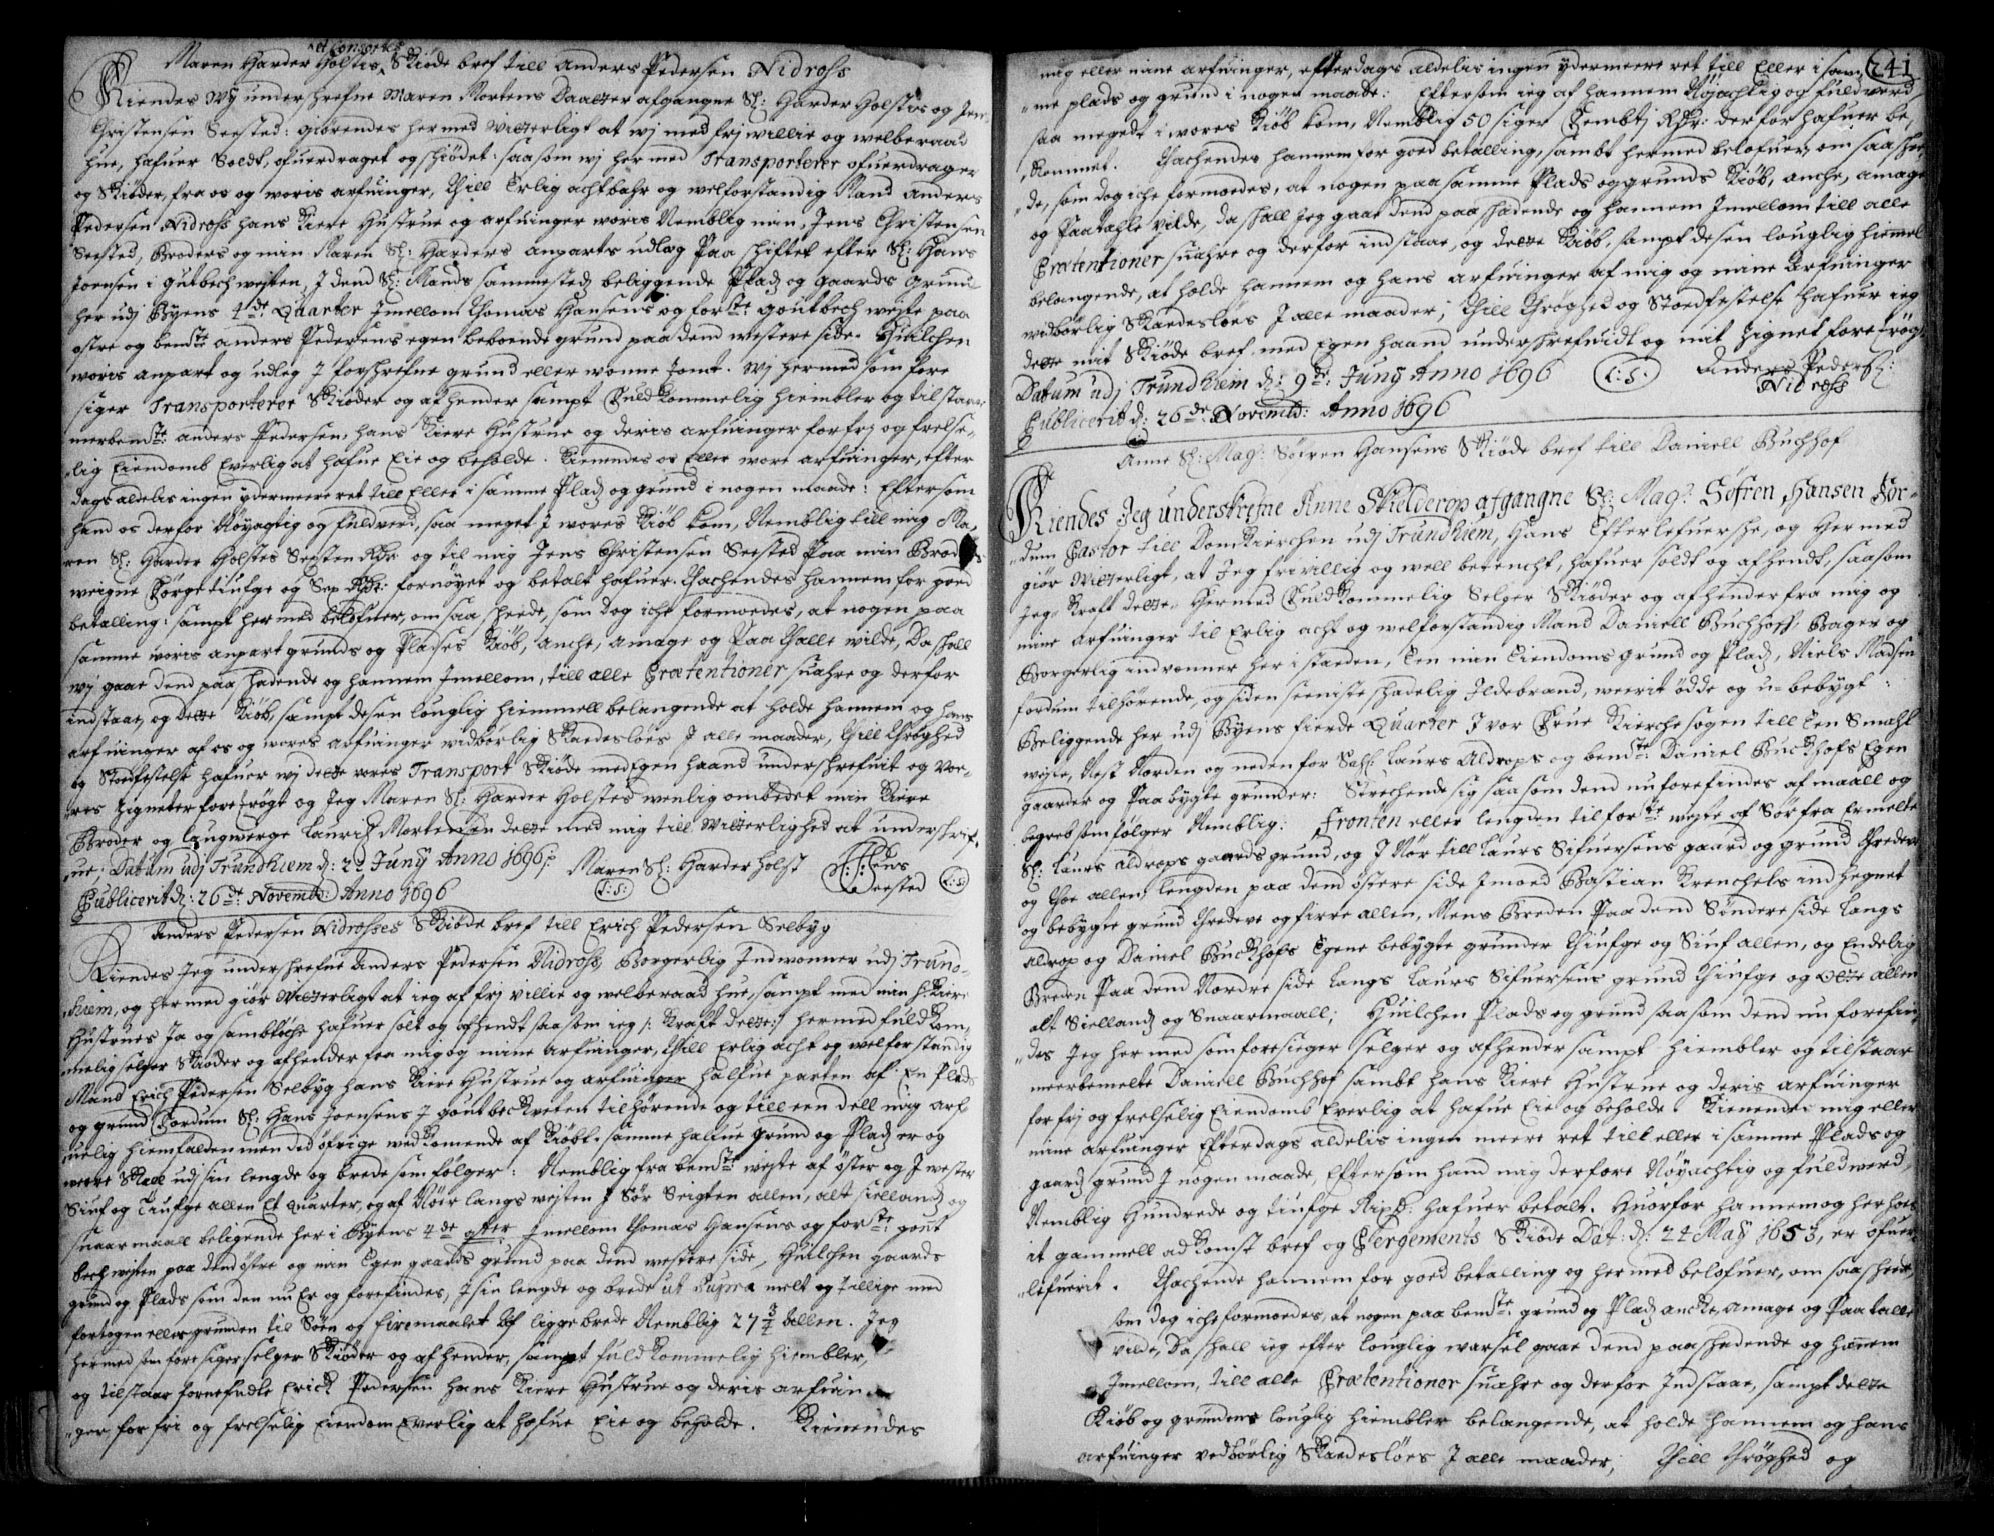 et Consortes
Maren Harder Holstes Skiøde bref till Anders Pedersen Nidross
Kiendes Wy underskrefne Maren Mortens Daatter afgangne Sl: Harder Holstes og Jens
Christensen Seested: giørendes hermed Witterligt at wj med frj willie og welberaad
hue, hafuer Soldt, ofuerdraget og skiødet: saa som wj her med Transporterer ofuerdrager
og Skiøder, fra os og woris arfuinger, Thill Erlig achtbahr og welforstandig Mand Anders
Pedersen Nidross hans Kiere Hustrue og arfuinger woris Nemblig min, Jens Christensen
Seested, Broders og min Maren Sl: Harders anparts udlag Paa skiftet efter Sl: Hans
Joensen i Gutbech weyten, J dend Sl: Mands sammesteds beliggende Pladz og Gaards Grund
her udj Byens 4de Quarter Jmellom Thomas Hansens og forste goutbech weyte paa
ostre og bendte anders Pedersens egen beboende grund paa dend westere side. Huilchen
woris anpart og udleg J forskrefne grund eller wonne tomt. Wj hermed som fore
siger Transporterer Skiøder og afhender sampt Fuldkommelig hiembler og tilstaar
merbendte anders Pedersen, hans Kiere Hustrue og deris arfuinger for frj og frelse-
lig Eiendomb Everlig at hafue Eie og beholde. Kienendes os Eller wore arfuinger, efter
dags aldelis ingen ydermeere ret till Eller i samme Pladz og grund i nogen maade: Eftersom
hand os derfor Nøyagtig og fuldverd, saa meget J wores Kiøb kom, Nemblig till mig Ma-
ren Sl: Harder Holstes Seysten Rdr og til mig Jens Christensen Seested Paa min Broders
weigne Førgetiufge og Sex Rdr: fornøyet og betalt hafuer. Thachendes hannem for goed
betalling: sampt hermed belofuer, om saa skeede, som dog iche formoedes, at nogen paa
samme woris anpart grunds og Pladses Kiøb, anche, amage og Paa Thalle wilde, Da skall
wj gaae dend paa skadende og hannem Jmellom, till alle Prætentioner suahre og derfor
indstaae, og dette Kiøb, sampt desen louglig hiemmell belangende at holde hannem og hans
arfuinger af os og wores arfuinger widbørlig Skadesløes J alle maader, Thill Thrøghed
og Stadfestelse hafuer wj dette vores Transport Skiøde med Egen haand underskrefuit og vor-
res Zigneter foretrøgt og Jeg Maren Sl: Harder Holstes wenlig ombedet min Kiere
Broder og Laugwerge Lauritz Mortensen dette med mig till Witterlighed at underskrif-
ue; Datum udj Trundhiem d: 22 Junij Anno 1696. Maren Sl: Harder Holst Jens
Publicerit d: 26de Novemb: Anno 1696 (L:S:) Seested (L:S:)
Anders Pedersen Nidrosses Skiøde bref till Erich Pedersen Selbyg
Kiendes Jeg underskrefne Anders Pedersen Nidross, Borgerlig Indwonner udj Trund-
hiem, og hermed giør Witterligt at ieg af frj villie og welberaad hue, sampt med min h: Kiere
Hustrues Ja og sambtøche hafuer solt og afhendt saa som ieg /: Kraft dette :/ hermed fuldkom-
melig selger Skøder og afhender fra mig og mine Arfuinger, Thill Erlig acht og welforstandig
Mand Erich Pedersen Selbyg hans Kiere Hustrue og arfuinger halfue parten af En Plads
og grund fordum Sl: Hans Joensens J goutbeckveten tilhørende og till een dell mig arf-
uelig hiemfalden men ded ofrige wedkomende af Kiøbt. samme halfue grund og Pladz er og
weere skall udj sin lengde og brede som følger: Nemblig fra bendte weyte af øster og J wester
Siuf og Tiufge allen Et quarter, og af Nør langs weyten J Sør Seigten allen, alt siellandz og
snaarmaall beligende her i Byens 4de qtter Jmellom Thomas Hansens og forste gout
bech weyten paa dend østre og min Egen gaards grund paa dend westere side, Huilchen gaards
grund og Plads som den nu Er og forefindes, J sin lengde og brede ut supra melt og tillige med
fortogen eller grunden til Søen og firemaalet bes: ligge brede Nemblig 27 3/4 allen. Jeg
hermed som fore siger selger Skiøder og afhender, sampt fuldkommelig hiembler,
og tilstaar fornefndte Erick Pedersen hans Kiere Hustrue og deris arfuin-
ger for fri og frelselig Eiendom Everlig at hafue Eie og beholde. Kienendes
241
mig eller mine arfuinger, efterdags aldelis ingen ydermeere ret till Eller i sam-
me plads og grund i nogen maade: Eftersom ieg af hannem Nøyachtig og fuldwerd
saa megedt i wores Kiøb kom, Nemblig 50 siger Fembti Rdr: derfor hafuer be-
kommet. Thachendes hannem for goed betalling, sambt hermed belofuer, om saa skee-
de, som dog iche formoedes, at nogen paa samme Plads og grunds Kiøb, anche, amage
og Paatahle vilde, da skall Jeg gaae dend paa skadende og hannem Jmellom till alle
Prætentioner suahre og derfor indstaae, og dette Kiøb, sampt desen louglig hiemel
belangende, at holde hannem og hans arfuinger af mig og mine Arfuinger
widbørlig Skaedesløes J alle maader; Thill Thrøghed og Stoedfestelse hafuer ieg
dette mit Skiøde bref med Egen haand underskrefuidt og mit Zignet foretrøgt.
Datum udj Trundhiem d: 9de: Junij Anno 1696 (L:S:) Anders Peders:
Publicerit d: 26de Novemb: Anno 1696 Nidross
Anne Sl: Mag: Søiren Hansens Skiøde bref till Daniell Buchhof
Kiendes Jeg underskrefne Anne Skielderop afgangne Sl: Mag: Søfren Hansen For-
dum Pastor till Domkierchen udj Trundhiem, Hans Efterlefuerske, og Hermed
giør Witterligt, at Jeg friwillig og well betencht, hafuer soldt og afhendt, saasom
Jeg /: Kraft dette :/ Hermed Fuldkommelig Selger Skiøder og afhender fra mig og
mine Arfuinger til Erlig acht og welforstandig Mand Daniell Buchhoff, Bager og
Borgerlig indvonner her i staeden, Een min Eiendoms grund og Pladz, Niels Madsen
fordum tilhørende, og siden seeniste skadelig Ildebrand, weerit ødde og u-bebygt
Beliggende her udj Byens fierde Quarter J vor Frue Kierche sogen till Een Smahl
wejte, Nest Norden og neden for Sahl: Laurs Aldrops og bendte Daniel Buckhofs Egen
gaarder og Paa bygte grunder: Strechende sig saa som dend nu forefindes af maall og
begreb som følger Nemblig: Fronten eller lengden til forte weyte af Sør fra Ermelte
Sl: Laurs Aldrops gaards grund, og J Nør till Laurs Sifuersens gaard og grund Thredeve
og Thoe allen, lengden paa dend østere side Jmoed Bastian Krenchels indhegnet
og bebygte grund Thredeve og firre allen, Mens Breden Paa dend Søndere side langs
aldrop og Daniel Buckhofs Egene bebygte grunder Thiufge og Siuf allen, og Endelig
Breden Paa dend Nordre side langs Laurs Sifuersens grund Thiufge og Otte allen
alt Siellandz og Snaarmaall; Huilchen Plads og grund saa som dend nu forefin-
des Jeg hermed som foresieger selger og afhender sampt hiembler og tilstaar
meerbemelte Daniell Buchhof sambt hans Kiere Hustrue og deris arfuinger
for frj og frelselig Eiendomb Everlig at hafue Eie og beholde. Kienendes mig eller
mine arfuinger Efterdags aldelis ingen meere ret till eller i samme Plads og
gaards grund J nogen maade, Eftersom hand mig derfore Nøyachtig og fuldwerd,
Nemblig Hundrede og tiufge Rixd: hafuer betalt. Huorfor hannem og her hos
it gammell adkomst bref og Pergements Skiøde Dat: d: 24 Maij 1653, er ofuer-
lefuerit. Thachende hannem for goed betalling og hermed belofuer, om saa skeede,
som dog iche formoedes, at nogen paa bendte grund og Pladz ancke, Amage og Paatalle
vilde, Da skall ieg efter louglig warsel gaae dend paa skadende og hannem
Jmellom, till alle Prætentioner suahre og derfor Indstaae, sampt dette
Kiøb og grundens louglig Hiembler belangende, at holde hannem og hans
arfuinger vedbørlig Skaedesløes J alle maader; Thill Thrøghed og